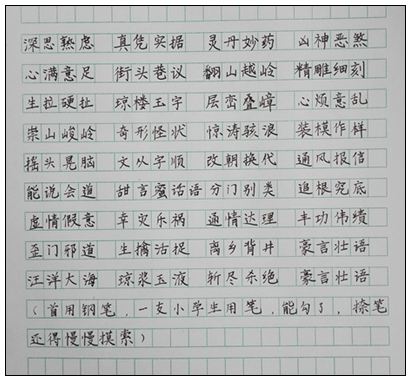 深思熟虑 真凭实据 灵丹妙药 凶神恶煞
心满意足 街头巷议 翻山越岭 精雕细刻
生拉硬扯 琼楼玉宇 层峦叠嶂 心烦意乱
崇山峻岭 奇形怪状 惊涛骇浪 装模作样
摇头晃脑 文从字顺 改朝换代 通风报信
能说会道 甜言蜜语语分门别类 追根究底
虚情假意 幸灾乐祸 通情达理 丰功伟绩
歪门邪道 生擒活捉 离乡背井 豪言壮语
汪洋大海 琼浆玉液 斩尽杀绝 豪言壮语
（首用钢笔，一支小学生用笔，能勾了，捺笔
还得慢慢摸索）